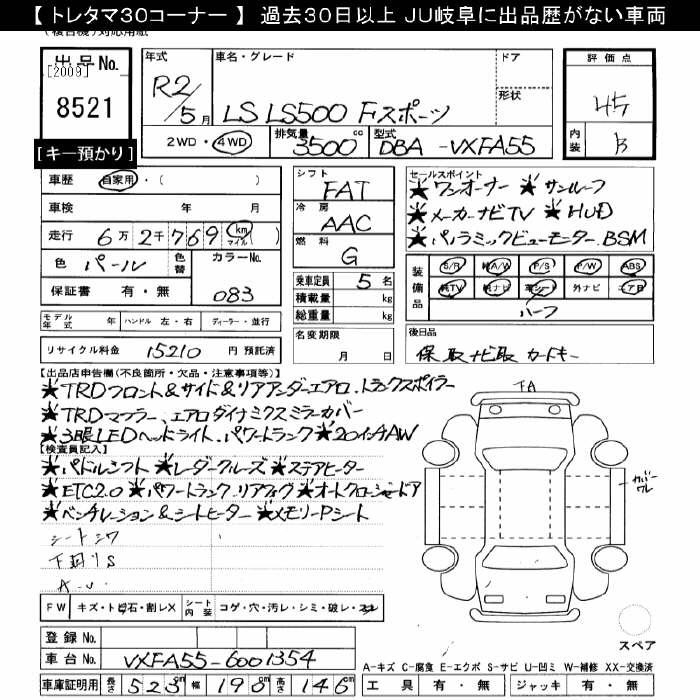 【 トレタマ30コーナー 】 過去30日以上 JU岐阜に出品歴がない車両
出品No.
[2009]
8521
[キー預かり]
年式 車名・グレード ドア
R2/5月 LS LS500 Fスポーツ 形状
2WD・4WD 排気量 3500 cc 型式 DBA-VXFA55
評価点
4.5
内装 B
車歴 自家用・( )
車検 年 月
走行 6万2千769 km マイル ( )
色 パール 色替 カラーNo. 083
保証書 有・無
モデル年式 年 ハンドル 左・右 ディーラー・並行
リサイクル料金 15210 円 預託済
シフト
FAT
冷房
AAC
燃料
G
乗車定員 5名
積載量 kg
総重量 kg
名変期限
月 日
セールスポイント
★ワンオーナー ★サンルーフ
★メーカーナビTV ★HUD
★パノラミックビューモニター.BSM
装備品 S/R 純A/W P/S P/W ABS
純TV 純ナビ 革シート 外ナビ エアB
ハーフ
後日品
保 取 ナビ取 カードキー
【出品店申告欄(不良箇所・欠品・注意事項等)】
★TRDフロント&サイド&リアアンダーエアロ.トランクスポイラー
★TRDマフラー、エアロダイナミクスミラーカバー
★3眼LEDヘッドライト.パワートランク★20インチAW
【検査員記入】
★パドルシフト ★レーダークルーズ ★ステアヒーター
★ETC2.0 ★パワートランク.リアフォグ ★オートクロージャードア
★ベンチレーション&シートヒーター ★メモリーPシート
シートシワ
下廻りS
FW キズ・トビ石・割レX シート内装 コゲ・穴・汚レ・シミ・破レ・スレ
登録No.
車台No. VXFA55-6001354
車庫証明用 長さ 523cm 幅 190cm 高さ 146cm
TA
カバーワレ
スペア
A-キズ C-腐食 E-エクボ S-サビ U-凹ミ W-補修 XX-交換済
工具 有・無 ジャッキ 有・無